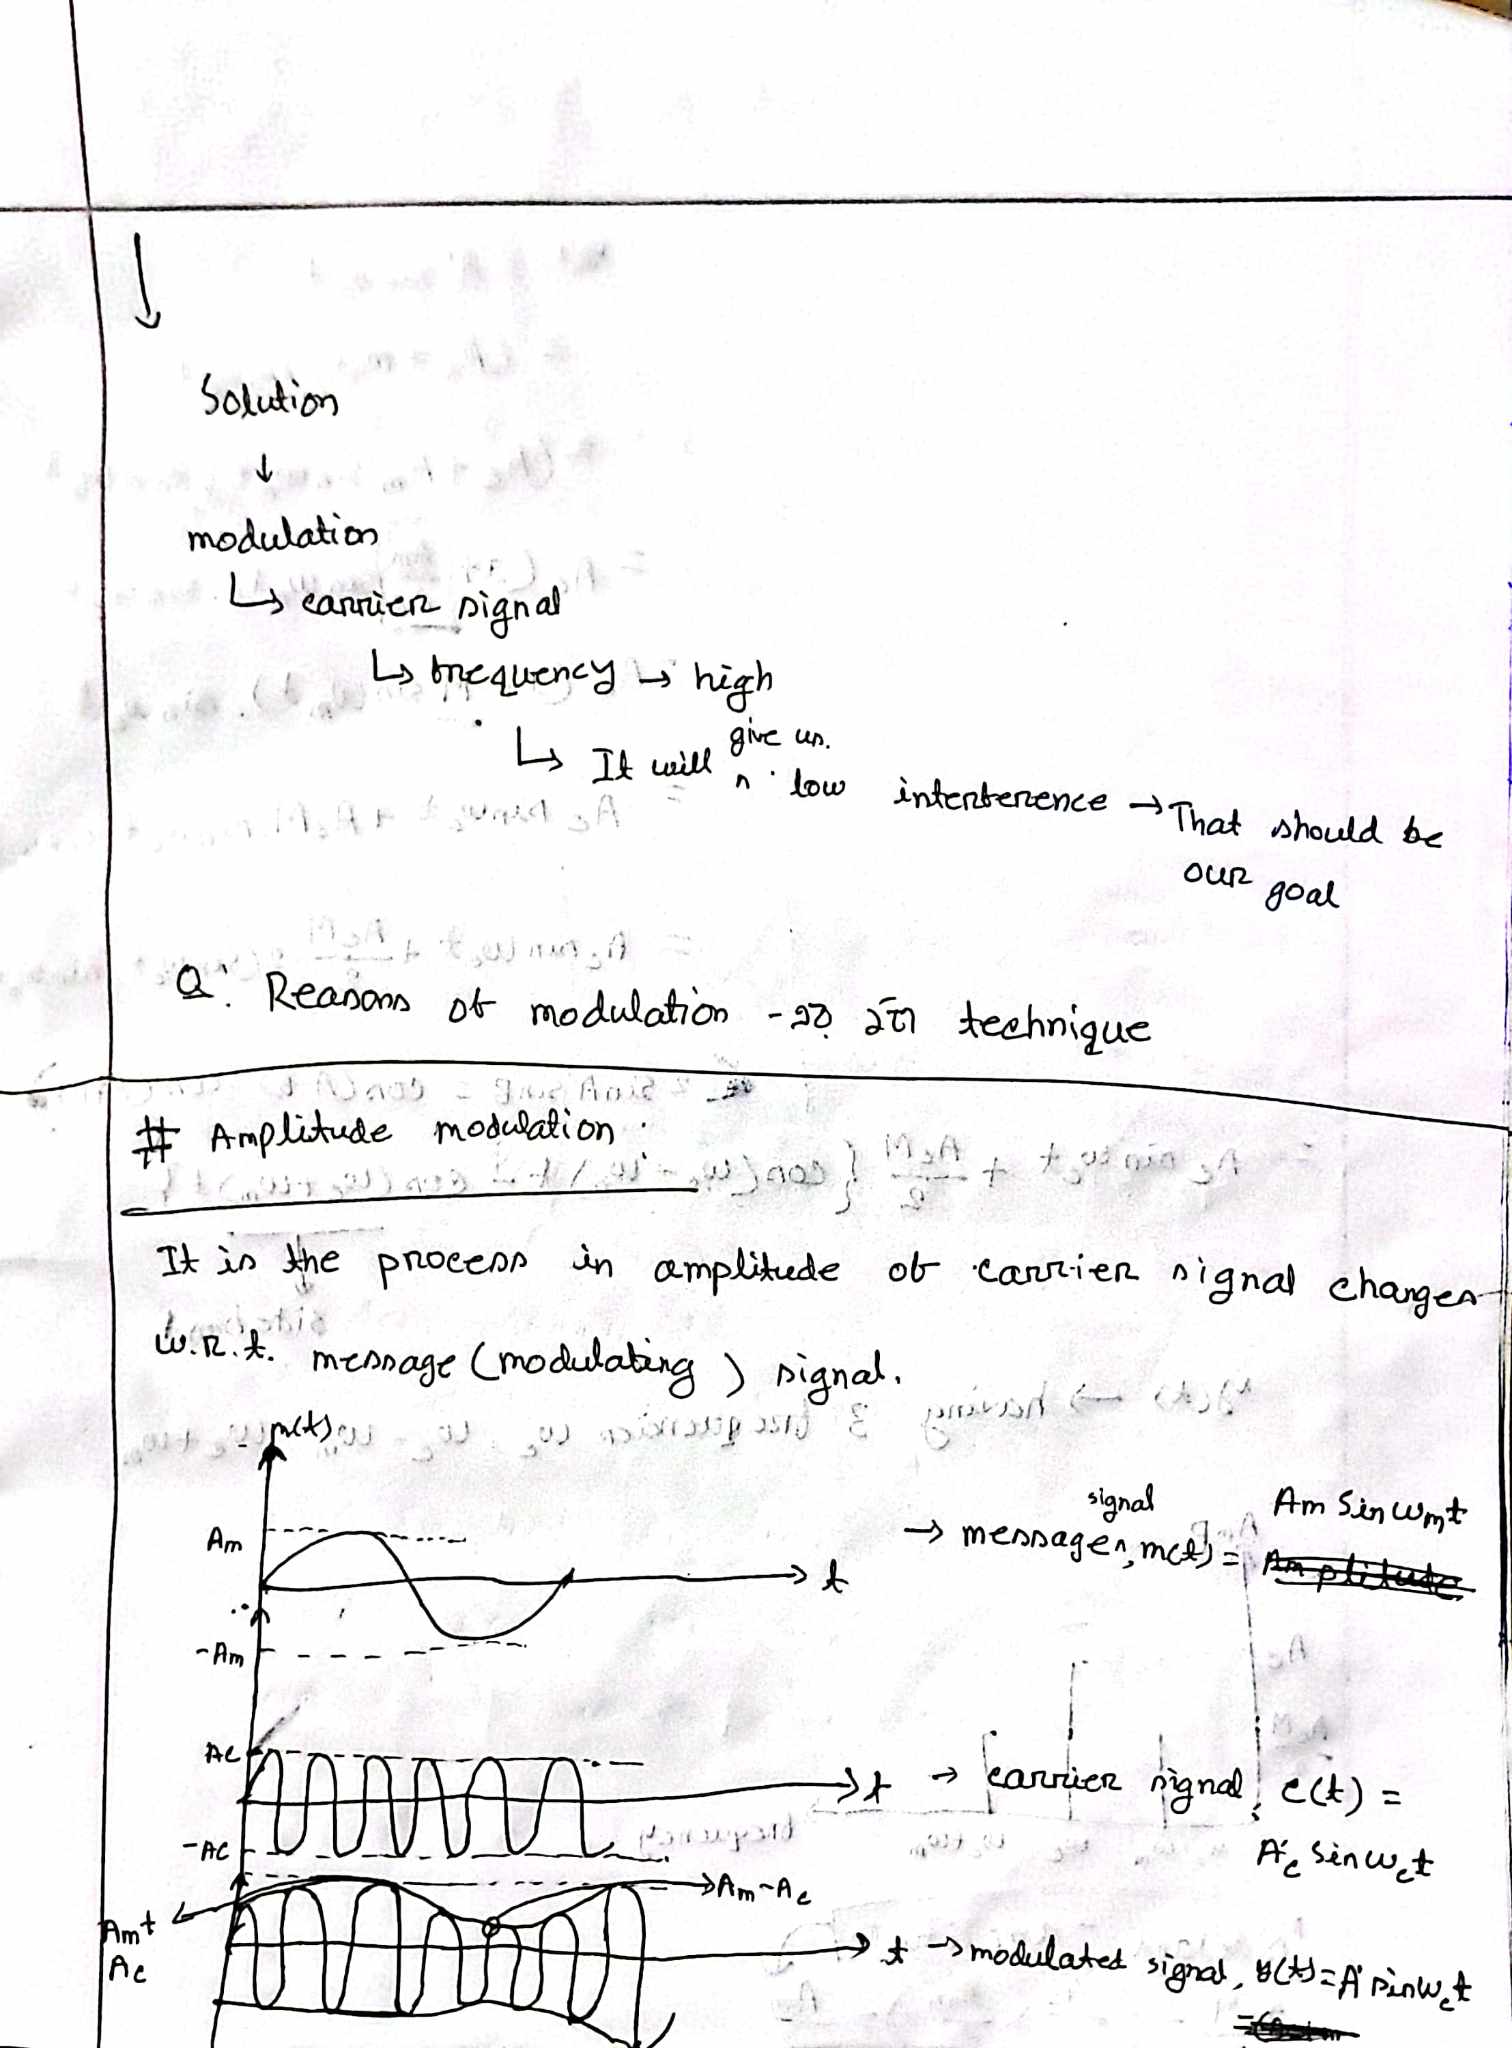 ↓
Solution
↓
modulation
↳ carrier signal
↳ frequency → high
↳ It will give us low interference → That should be our goal
Q: Reasons of modulation - technique
# Amplitude modulation
It is the process in amplitude of carrier signal changes
w.r.t. message (modulating) signal.
m(t)
Am
t
→ message signal, m(t) = Am Sin ωmt
-Am
Ac
t → carrier signal, c(t) =
-Ac
Ac Sin ωct
Am~Ac
Am+
Ac
t → modulated signal, y(t) = A' sin ωct